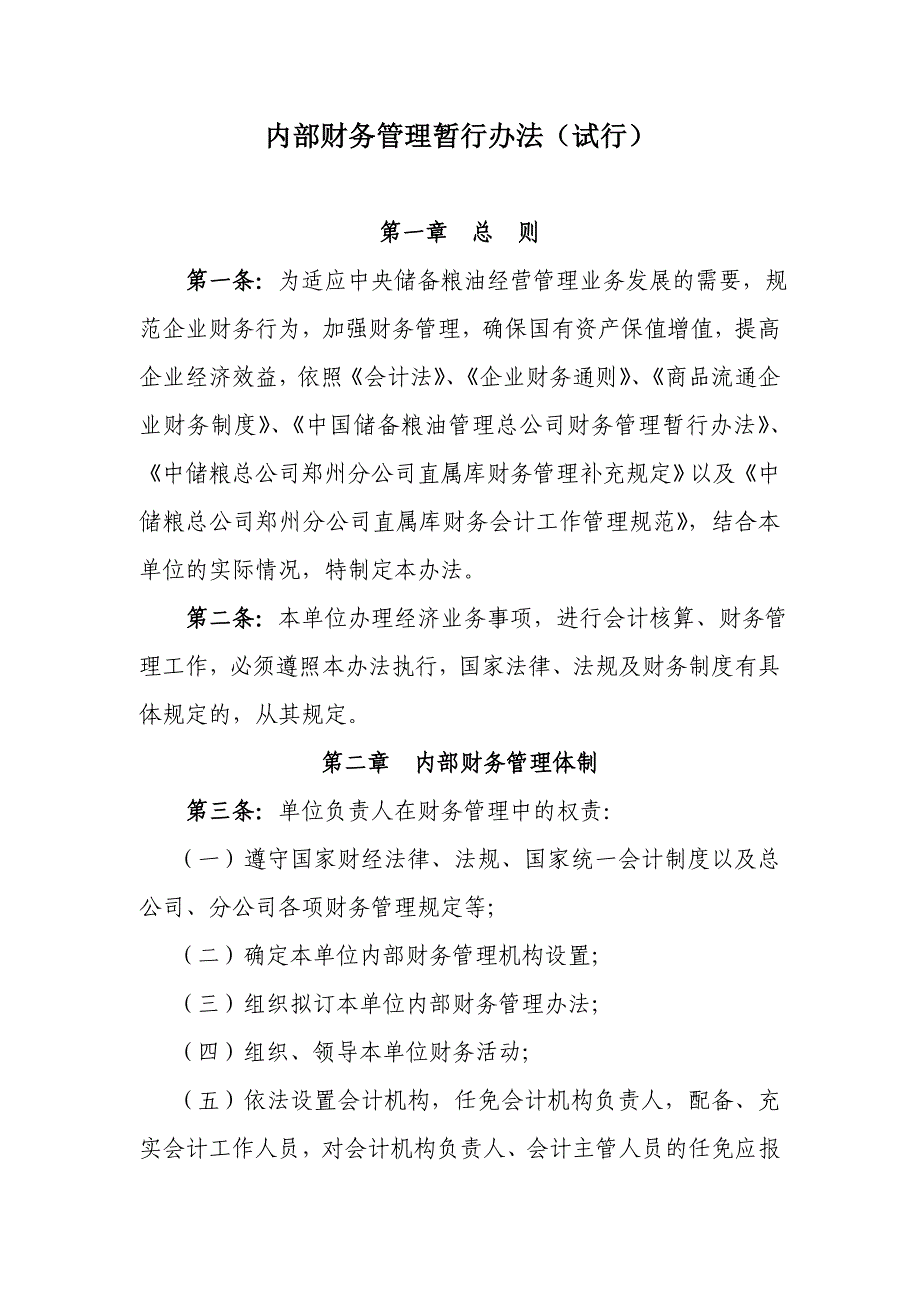 内部财务管理暂行办法（试行）
第一章　总　则
第一条：为适应中央储备粮油经营管理业务发展的需要，规
范企业财务行为，加强财务管理，确保国有资产保值增值，提高
企业经济效益，依照《会计法》、《企业财务通则》、《商品流通企
业财务制度》、《中国储备粮油管理总公司财务管理暂行办法》、
《中储粮总公司郑州分公司直属库财务管理补充规定》以及《中
储粮总公司郑州分公司直属库财务会计工作管理规范》，结合本
单位的实际情况，特制定本办法。
第二条：本单位办理经济业务事项，进行会计核算、财务管
理工作，必须遵照本办法执行，国家法律、法规及财务制度有具
体规定的，从其规定。
第二章　内部财务管理体制
第三条：单位负责人在财务管理中的权责：
（一）遵守国家财经法律、法规、国家统一会计制度以及总
公司、分公司各项财务管理规定等；
（二）确定本单位内部财务管理机构设置；
（三）组织拟订本单位内部财务管理办法；
（四）组织、领导本单位财务活动；
（五）依法设置会计机构，任免会计机构负责人，配备、充
实会计工作人员，对会计机构负责人、会计主管人员的任免应报